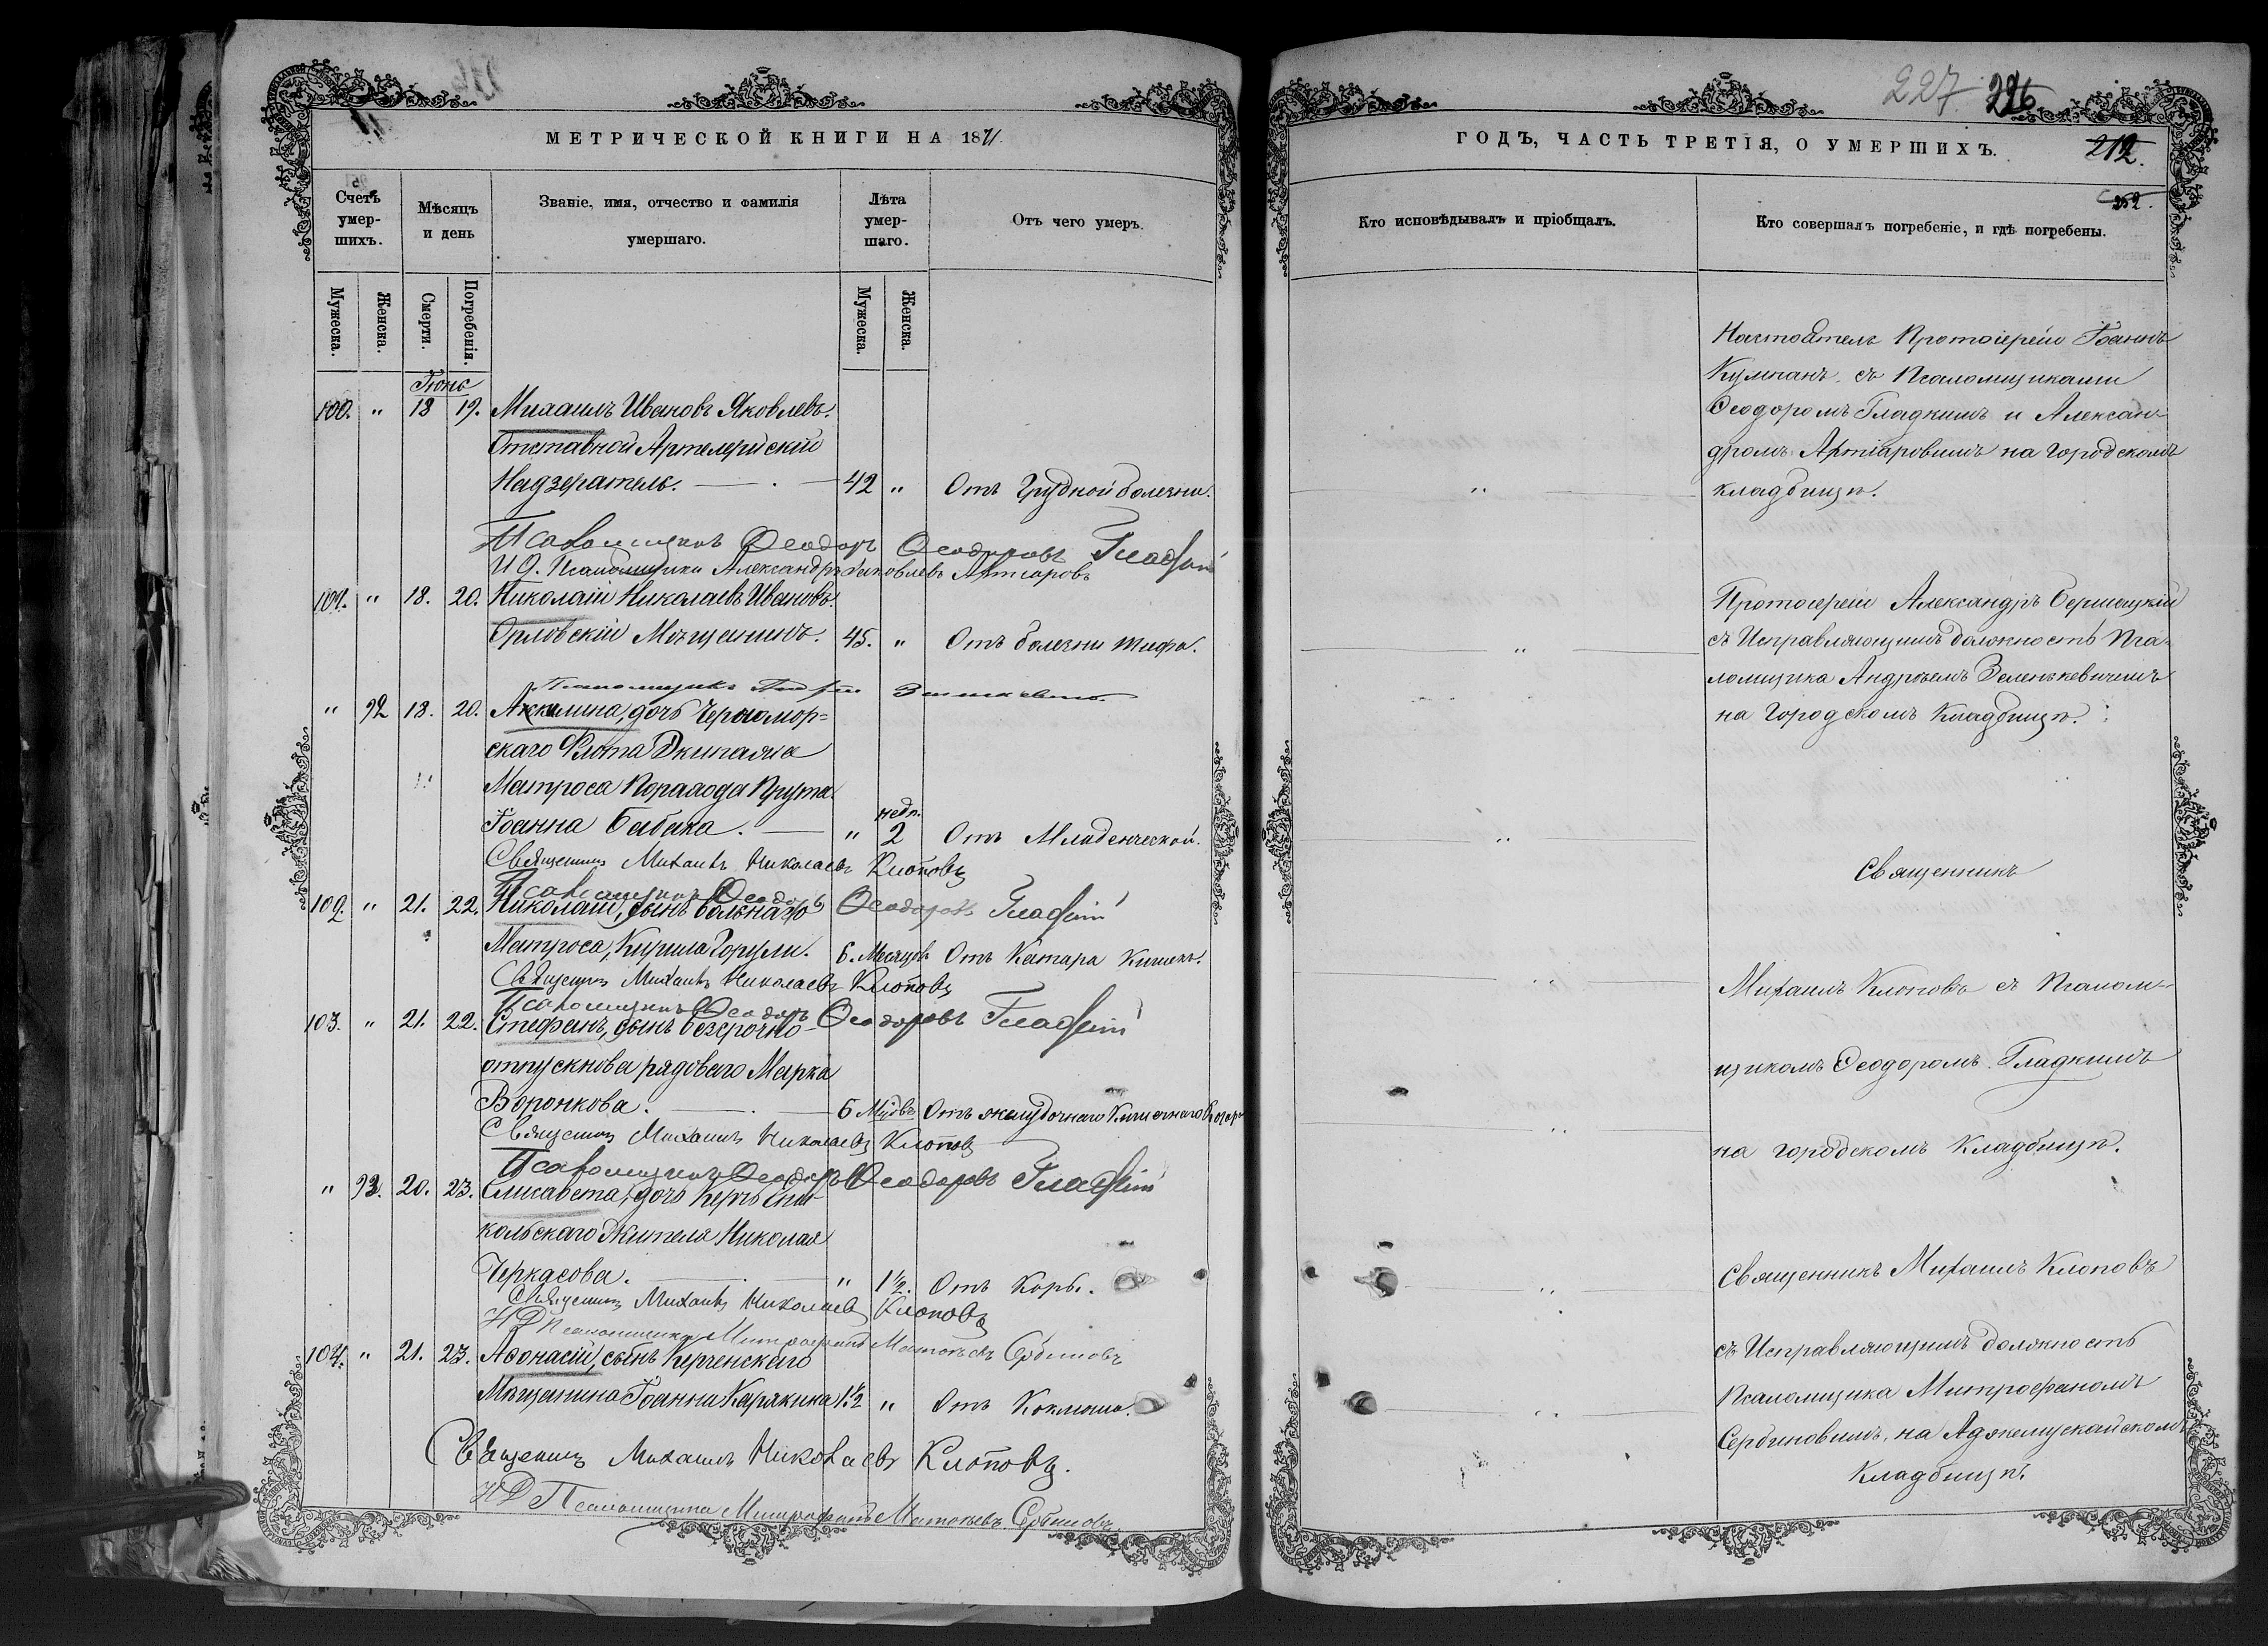 МЕТРИЧЕСКОЙ КНИГИ НА 1871.
Счетъ умер-шихъ.
Мѣсяцъ и день
Званіе, имя, отчество и фамилія умершаго.
Лѣта умер-шаго.
Отъ чего умеръ.
Мужеска.
Женска.
Смерти.
Погребенія.
Мужеска.
Женска.
Іюнь
100. " 18 19. Михаилъ Ивановъ Яковлевъ.
Отставной Артелерійскій
Надзератель. 42 " Отъ Грудной болезни.
Псаломщикъ Ѳеодоръ Ѳеодоровъ Гладкій
И Д. Псаломщика Александръ Яковлевъ Артіаровъ
101. " 18. 20. Николай Николаевъ Ивановъ.
Орловскій Мѣщанинъ. 45. " Отъ болезни тифа.
" 92 18. 20. Аккилина, дочь Черномор=
скаго Флота Экипажа
Матроса Парахода Прута
Іоанна Бабака. " недѣ. 2 Отъ Младенческой.
Священникъ Михаилъ Николаевъ Клоповъ
Псаломщикъ Ѳеодоръ Ѳеодоровъ Гладкій
102. " 21. 22. Николай, сынъ больнаго
Матроса, Кирила Горули. 6. Месяцовъ Отъ Катара Кишекъ.
Священникъ Михаилъ Николаевъ Клоповъ
Псаломщикъ Ѳеодоръ Ѳеодоровъ Гладкій
103. " 21. 22. Стефанъ, сынъ безсрочно-
отпускнова рядоваго Марка
Воронкова. 6 Отъ желудочнаго Кишечнаго
Священникъ Михаилъ Николаевъ Клоповъ
Псаломщикъ Ѳеодоръ Ѳеодоровъ Гладкій
" 93. 20. 23. Елисавета, дочь Керчь Ени-
кольскаго Жителя Николая
Черкасова. " 1½. Отъ Коры.
Священникъ Михаилъ Николаевъ Клоповъ
И Д Псаломщика Митрофанъ
104. " 21. 23. Аѳонасій, сынъ Керченскаго
Мѣщанина Іоанна Карякина 1½ " Отъ Коклюша.
Священникъ Михаилъ Николаевъ Клоповъ.
И Д Псаломщика Митрофанъ
227 226
ГОДЪ, ЧАСТЬ ТРЕТІЯ, О УМЕРШИХЪ.
212.
252.
Кто исповѣдывалъ и пріобщалъ.
Кто совершалъ погребеніе, и гдѣ погребены.
Настоятель Протоіерей Іоаннъ
Кумпанъ съ Псаломщиками
Ѳеодоромъ Гладкимъ и Алексан-
дромъ Артіаровымъ на Городскомъ
кладбищѣ.
Протоіерей Александръ
съ Исправляющимъ должность Пса-
ломщика Андреемъ Зеленкевичемъ
на Городскомъ Кладбищѣ.
Священникъ
Михаилъ Клоповъ съ Псалом-
щикомъ Ѳеодоромъ Гладкимъ
на городскомъ Кладбищѣ.
Священникъ Михаилъ Клоповъ
съ Исправляющимъ должность
Псаломщика Митрофаномъ
Сербиновымъ, на Аджемускайскомъ
Кладбищѣ.